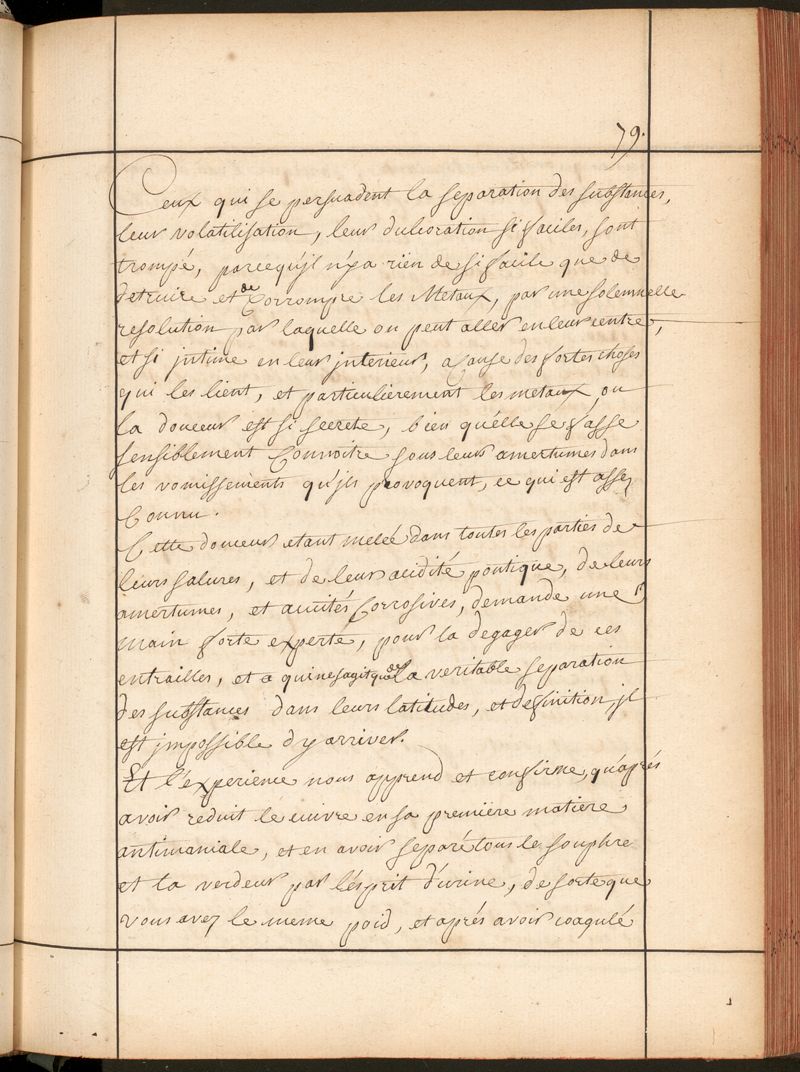 79.
Ceux qui se persuadent la separation des substances,
leur volatilisation, leur dulcoration si faciles, sont
trompé, parcequ'jl n'y a rien de si facile que de
detruire et de Corrompre les Metaux, par une solemnelle
resolution par laquelle on peut aller en leur centre,
et si jntime en leur jnterieur, a Cause des fortes choses
qui les lient, et particulierement les metaux ou
la douceur est si secrete, bien qu'elle se fasse
sensiblement Connoitre sous leur amertumes dans
les vomissements qu'jls provoquent, ce qui est assez
Connu.
Cette douceur etant melée dans toutes les parties de
leurs salures, et de leur acidité pontique, de leurs
amertumes, et acuités Corrosives, demande une
main forte experte, pour la degager de ces
entrailles, et a qui ne sagit que de la veritable separation
des substances dans leurs latitudes, et definition, jl
est jmpossible d'y arriver.
Et l'experience nous apprend et confirme, qu'aprés
avoir reduit le cuivre en sa premiere matiere
antimaniale, et en avoir separé tous le souphre
et la verdeur par l'esprit d'urine, de sorte que
vous avez le meme poid, et aprés avoir coagulé